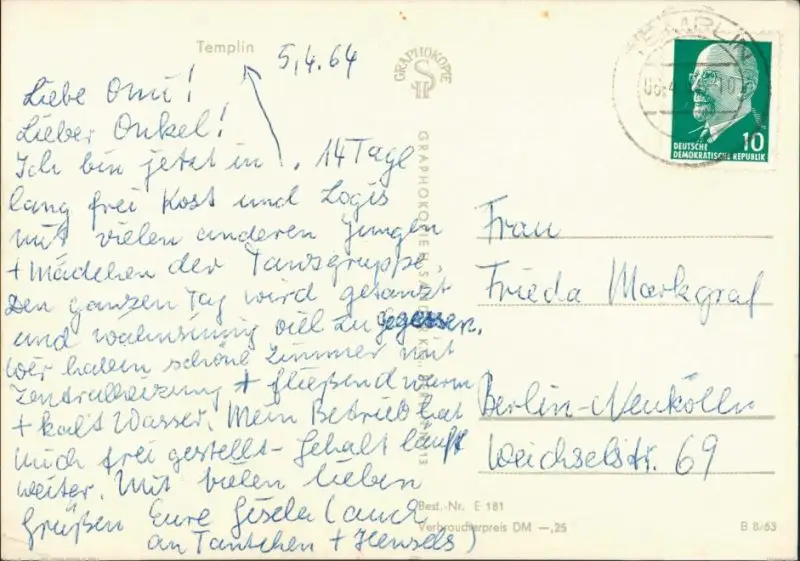 Templin
5.4.64
Liebe Omi!
Lieber Onkel!
Ich bin jetzt in . 14 Tage
lang frei Kost und Logis
mit vielen anderen Jungen
+ Mädchen der Tanzgruppe.
Den ganzen Tag wird getanzt
und wahnsinnig viel zu gegessen.
Wir haben schöne Zimmer mit
Zentralheizung + fließend warm
+ kalt Wasser. Mein Betrieb hat
mich frei gestellt - Gehalt läuft
weiter. Mit vielen lieben
Grüßen Eure Gisela (auch
an Tantchen + Hensels)
GRAPHOKOPIE
GRAPHOKOPIE H. SANDER KG. BERLIN
DEUTSCHE
DEMOKRATISCHE REPUBLIK
10
Frau
Frieda Markgraf
Berlin-Neukölln
Weichselstr. 69
Best.-Nr. E 181
Verbraucherpreis DM —,25
B 8/63